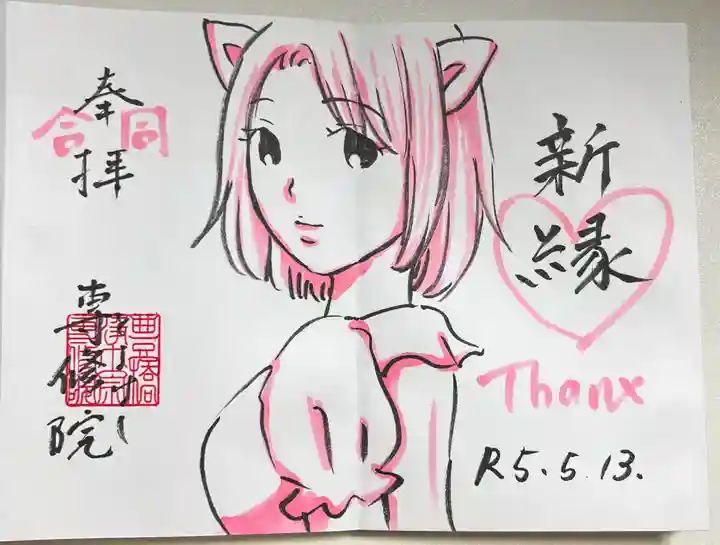 新縁
Thanx
R5.5.13.
奉拝
合同
専修院